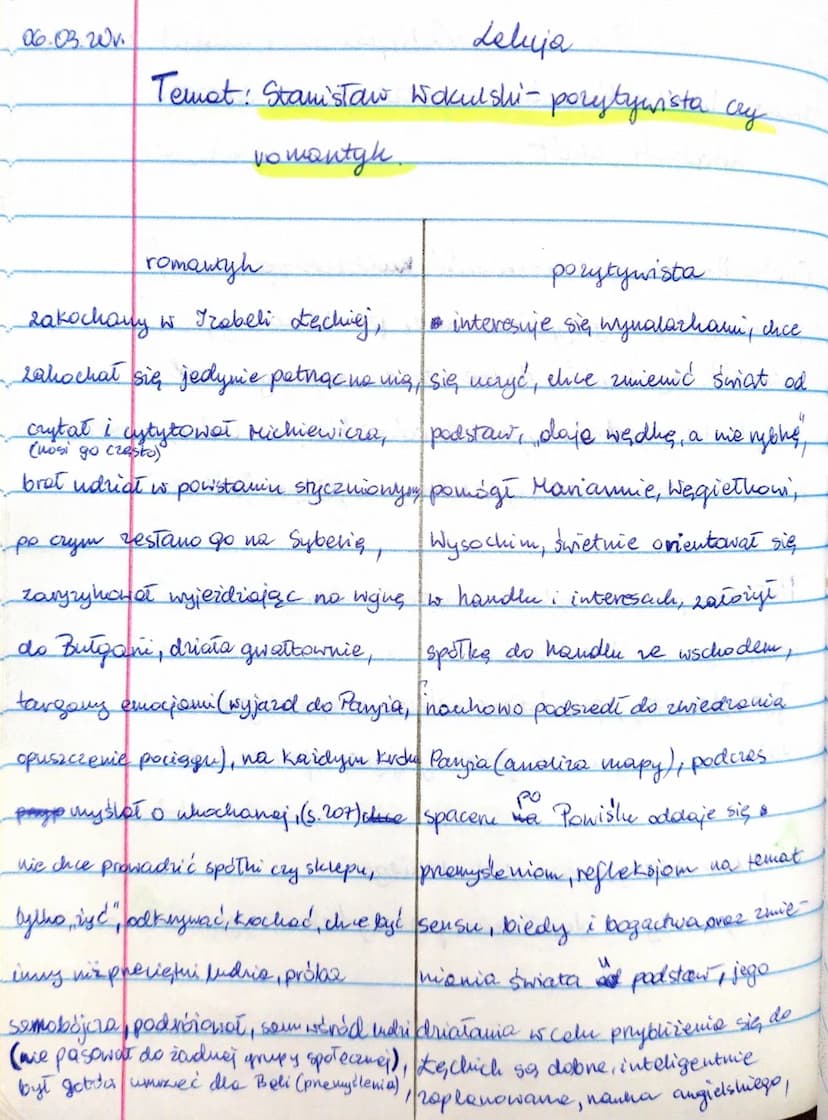 06.03.20r. Lekcja
Temat: Stanisław Wokulski - pozytywista czy
romantyk.
romantyk
zakochany w Izabeli Łęckiej,
zakochał się jedynie patrząc na nią,
czytał i cytytował Mickiewicza,
(nosi go często)
brał udział w powstaniu styczniowym,
po czym zesłano go na Syberię,
zaryzykował wyjeżdżając na wojnę
do Bułgarii, działa gwałtownie,
targany emocjami (wyjazd do Paryża,
opuszczenie pociągu), na każdym kroku
myślał o ukochanej, (s.207)
nie chce prowadzić spółki czy sklepu,
tylko „żyć", odkrywać, kochać, chce być
inny niż przeciętni ludzie, próba
samobójcza, podróżował, sam wśród ludzi
(nie pasował do żadnej grupy społecznej),
był gotów umrzeć dla Beli (przemyślenia),
pozytywista
interesuje się wynalazkami, chce
się uczyć, chce zmienić świat od
podstaw, „daje wędkę, a nie rybkę",
pomógł Mariannie, Węgiełkowi,
Wysockim, świetnie orientował się
w handlu i interesach, założył
spółkę do handlu ze wschodem,
naukowo podszedł do zwiedzania
Paryża (analiza mapy), podczas
spaceru po Powiślu oddaje się
przemyśleniom, refleksjom na temat
sensu, biedy i bogactwa, oraz zmie-
niania świata u podstaw, jego
działania w celu przybliżenia się do
Łęckich są dobne, inteligentnie
zaplanowane, nauka angielskiego,